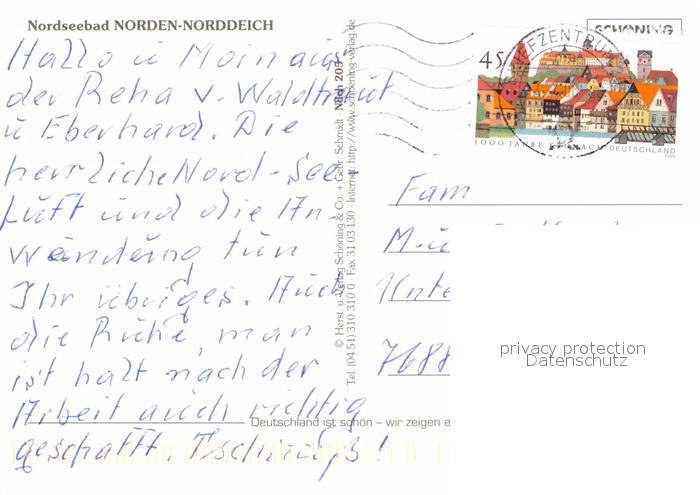 Nordseebad NORDEN-NORDDEICH
Hallo u Moin aus
der Reha v. Waldtraut
u Eberhard. Die
herrliche Nord-See
Luft und die An-
wendung tun
Ihr übriges. Auch
die Ruhe, man
ist halt nach der
Arbeit auch richtig
geschafft. Tschüüß!
© Herst. u. Verlag Schöning & Co. + Gebr. Schmidt · Ndch 205
Tel. (04 51) 310 310 0 · Fax 31 03 130 · Internet: http://www.schoening-verlag.de
Deutschland ist schön – wir zeigen e
SCHÖNING
BRIEFZENTRUM
45
1000 JAHRE KRONACH DEUTSCHLAND
2003
Fam
M. u
Unte
7688
privacy protection
Datenschutz